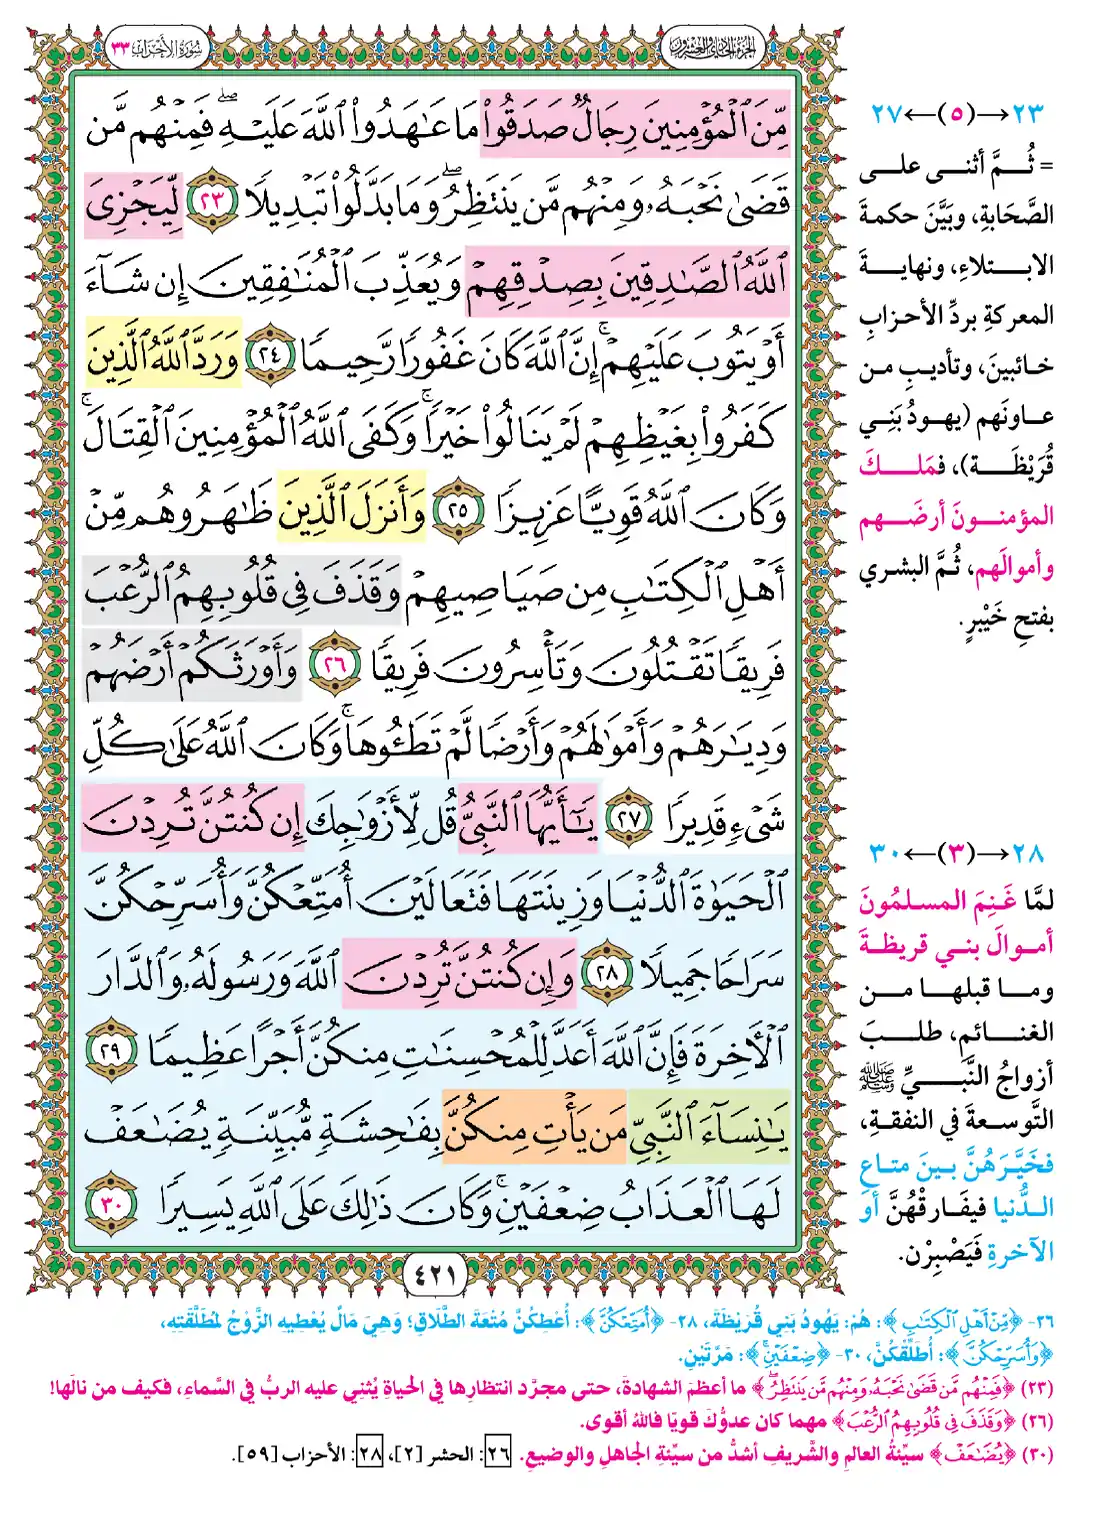 سُورَةُ الأَحْزَابِ ٣٣
الجزء الحادي والعشرون
مِّنَ ٱلْمُؤْمِنِينَ رِجَالٌ صَدَقُوا۟ مَا عَٰهَدُوا۟ ٱللَّهَ عَلَيْهِ ۖ فَمِنْهُم مَّن
قَضَىٰ نَحْبَهُۥ وَمِنْهُم مَّن يَنتَظِرُ ۖ وَمَا بَدَّلُوا۟ تَبْدِيلًا ٢٣ لِّيَجْزِىَ
ٱللَّهُ ٱلصَّٰدِقِينَ بِصِدْقِهِمْ وَيُعَذِّبَ ٱلْمُنَٰفِقِينَ إِن شَآءَ
أَوْ يَتُوبَ عَلَيْهِمْ ۚ إِنَّ ٱللَّهَ كَانَ غَفُورًا رَّحِيمًا ٢٤ وَرَدَّ ٱللَّهُ ٱلَّذِينَ
كَفَرُوا۟ بِغَيْظِهِمْ لَمْ يَنَالُوا۟ خَيْرًا ۚ وَكَفَى ٱللَّهُ ٱلْمُؤْمِنِينَ ٱلْقِتَالَ ۚ
وَكَانَ ٱللَّهُ قَوِيًّا عَزِيزًا ٢٥ وَأَنزَلَ ٱلَّذِينَ ظَٰهَرُوهُم مِّنْ
أَهْلِ ٱلْكِتَٰبِ مِن صَيَاصِيهِمْ وَقَذَفَ فِى قُلُوبِهِمُ ٱلرُّعْبَ
فَرِيقًا تَقْتُلُونَ وَتَأْسِرُونَ فَرِيقًا ٢٦ وَأَوْرَثَكُمْ أَرْضَهُمْ
وَدِيَٰرَهُمْ وَأَمْوَٰلَهُمْ وَأَرْضًا لَّمْ تَطَـُٔوهَا ۚ وَكَانَ ٱللَّهُ عَلَىٰ كُلِّ
شَىْءٍ قَدِيرًا ٢٧ يَٰٓأَيُّهَا ٱلنَّبِىُّ قُل لِّأَزْوَٰجِكَ إِن كُنتُنَّ تُرِدْنَ
ٱلْحَيَوٰةَ ٱلدُّنْيَا وَزِينَتَهَا فَتَعَالَيْنَ أُمَتِّعْكُنَّ وَأُسَرِّحْكُنَّ
سَرَاحًا جَمِيلًا ٢٨ وَإِن كُنتُنَّ تُرِدْنَ ٱللَّهَ وَرَسُولَهُۥ وَٱلدَّارَ
ٱلْءَاخِرَةَ فَإِنَّ ٱللَّهَ أَعَدَّ لِلْمُحْسِنَٰتِ مِنكُنَّ أَجْرًا عَظِيمًا ٢٩
يَٰنِسَآءَ ٱلنَّبِىِّ مَن يَأْتِ مِنكُنَّ بِفَٰحِشَةٍ مُّبَيِّنَةٍ يُضَٰعَفْ
لَهَا ٱلْعَذَابُ ضِعْفَيْنِ ۚ وَكَانَ ذَٰلِكَ عَلَى ٱللَّهِ يَسِيرًا ٣٠
٤٢١
٢٣→(٥)←٢٧
= ثُمَّ أثنى على
الصَّحَابةِ، وبَيَّنَ حكمةَ
الابتلاءِ، ونهايةَ
المعركةِ بردِّ الأحزابِ
خائبينَ، وتأديبِ من
عاونَهم (يهودُ بَنِي
قُرَيْظَة)، فمَلكَ
المؤمنونَ أرضَهم
وأموالَهم، ثُمَّ البشري
بفتحِ خَيْبرٍ.
٢٨→(٣)←٣٠
لمَّا غَنِمَ المسلمُونَ
أموالَ بني قريظةَ
وما قبلها من
الغنائمِ، طلبَ
أزواجُ النَّبيِّ ﷺ
التَّوسعةَ في النفقةِ،
فخَيَّرَهُنَّ بينَ متاعِ
الدُّنيا فيفَارقْهُنَّ أو
الآخرةِ فَيَصْبِرْن.
٢٦- ﴿مِّنْ أَهْلِ ٱلْكِتَٰبِ﴾: هُمْ: يَهُودُ بَنِي قُرَيْظَةَ، ٢٨- ﴿أُمَتِّعْكُنَّ﴾: أُعْطِكُنَّ مُتْعَةَ الطَّلَاقِ؛ وَهِيَ مَالٌ يُعْطِيهِ الزَّوْجُ لمُطَلَّقَتِهِ،
﴿وَأُسَرِّحْكُنَّ﴾: أُطَلِّقْكُنَّ، ٣٠- ﴿ضِعْفَيْنِ﴾: مَرَّتَيْنِ.
(٢٣) ﴿فَمِنْهُم مَّن قَضَىٰ نَحْبَهُۥ وَمِنْهُم مَّن يَنتَظِرُ﴾ ما أعظمَ الشهادةَ، حتى مجرَّد انتظارِها في الحياةِ يُثنِي عليه الربُّ في السَّماءِ، فكيف من نالَها!
(٢٦) ﴿وَقَذَفَ فِى قُلُوبِهِمُ ٱلرُّعْبَ﴾ مهما كان عدوُّكَ قويًا فاللهُ أقوى.
(٣٠) ﴿يُضَٰعَفْ﴾ سيِّئةُ العالمِ والشَّريفِ أشدُّ من سيِّئةِ الجاهلِ والوضيعِ. ٢٦: الحشر [٢]، ٢٨: الأحزاب [٥٩].